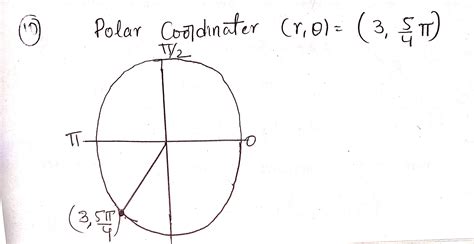 Polar Coordinater (r, θ) = (3, 5/4 π)
π/2
π
0
(3, 5π/4)